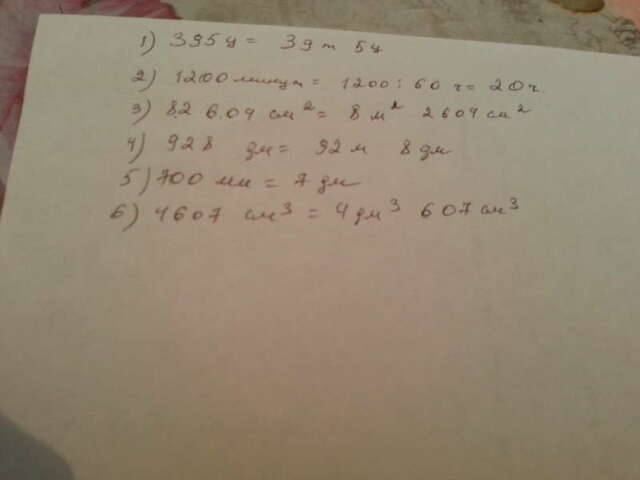 1) 395 ц = 39 т 5 ц
2) 1200 минут = 1200 : 60 ч = 20 ч.
3) 82 604 см² = 8 м² 2604 см²
4) 928 дм = 92 м 8 дм
5) 700 мм = 7 дм
6) 4607 см³ = 4 дм³ 607 см³